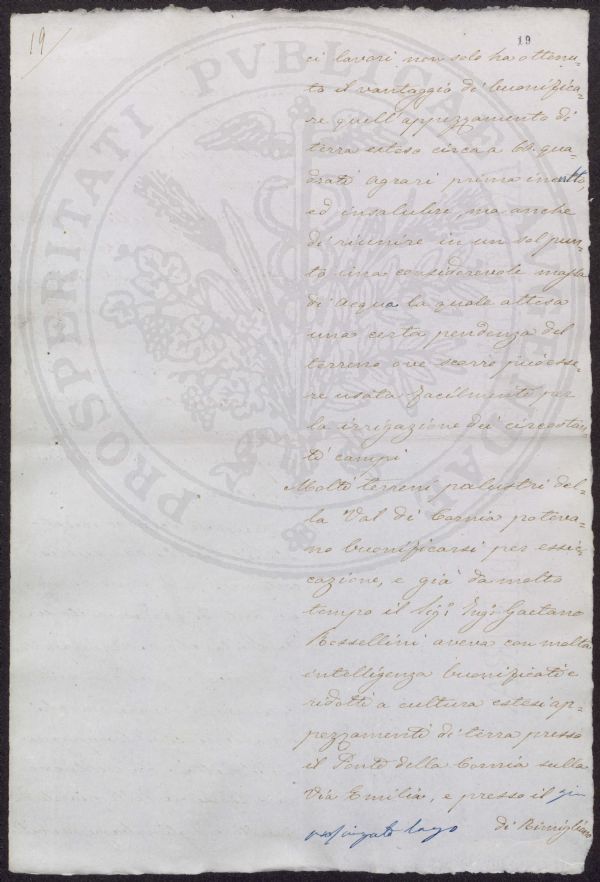 19
19
ci lavori non solo ha ottenu-
to il vantaggio di buonifica-
re quell'appezzamento di
terra esteso circa a 60. qua-
drati agrari prima incolto,
ed insalubre, ma anche
di riunire in un sol pun-
to una considerevole massa
di acqua la quale attesa
una certa pendenza del
terreno ove scorre può esse-
re usata facilmente per
la irrigazione dei circostan-
ti campi
Molti terreni palustri del-
la Val di Cornia poteva-
no buonificarsi per essic-
cazione, e già da molto
tempo il Sigr. Ingr. Gaetano
Rossellini aveva con molta
intelligenza buonificati e
ridotti a cultura estesi ap-
pezzamenti di terra presso
il Ponte della Cornia sulla
Via Emilia, e presso il
lago di Rimigliano
PROSPERITATI PVBLICAE AVGENDAE